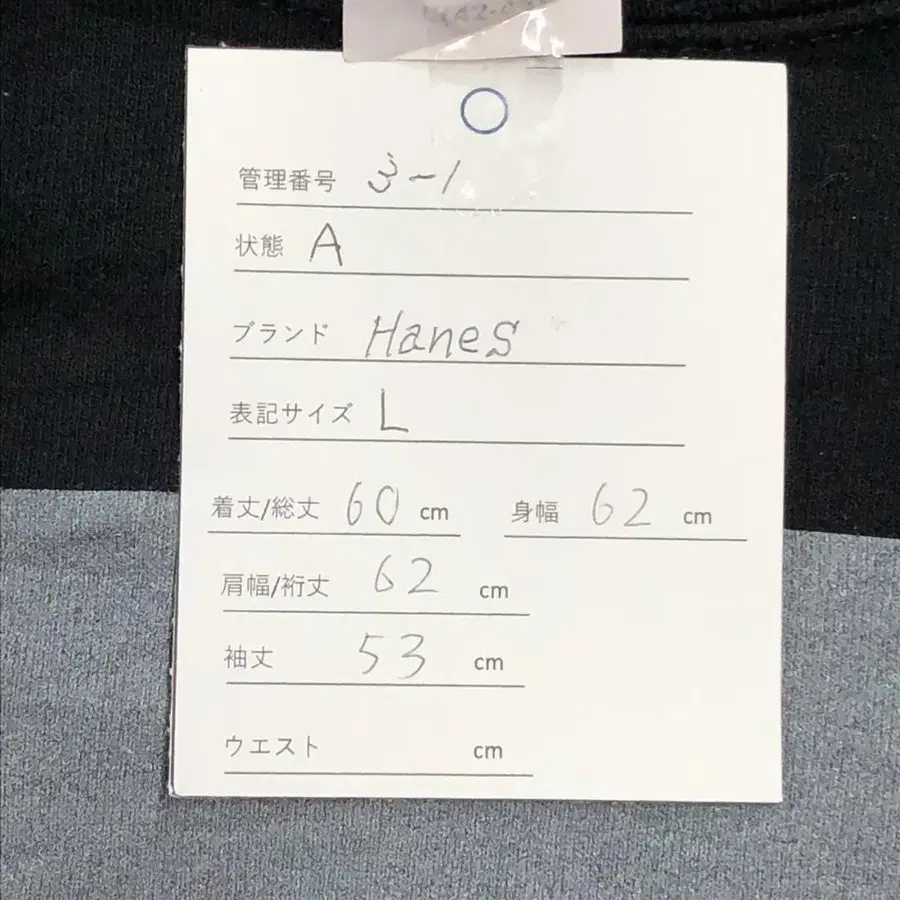 管理番号 3-1
状態 A
ブランド Hanes
表記サイズ L
着丈/総丈 60 cm 身幅 62 cm
肩幅/裄丈 62 cm
袖丈 53 cm
ウエスト cm